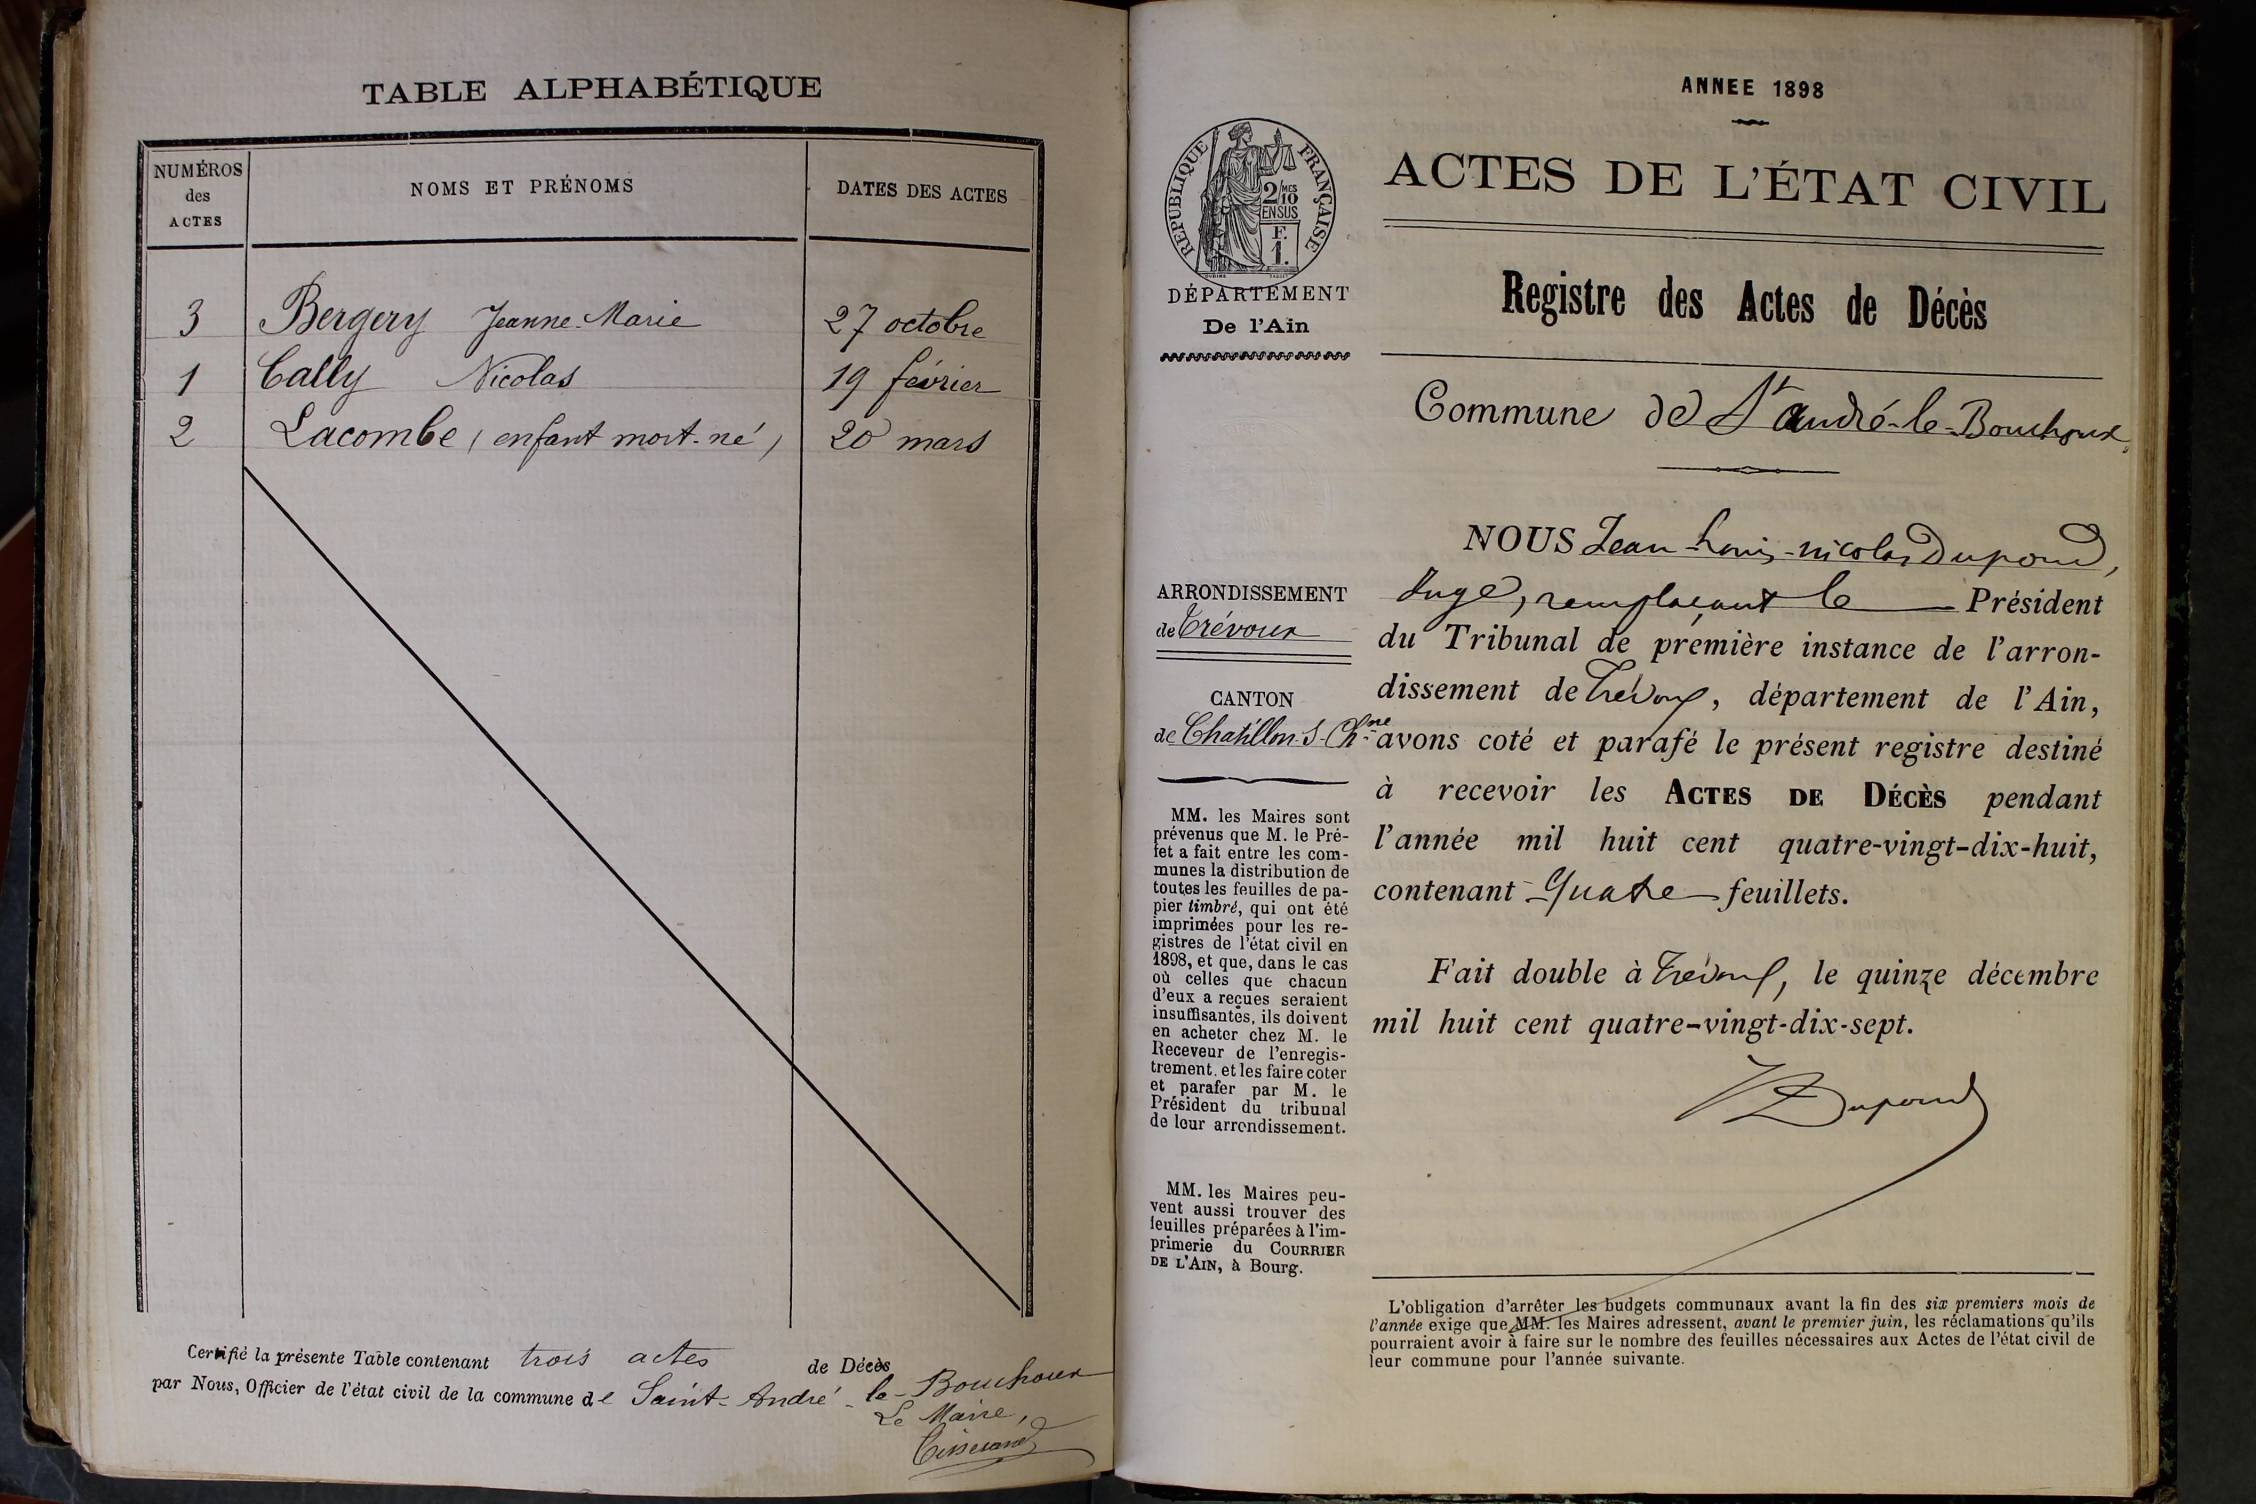 TABLE ALPHABÉTIQUE
NUMÉROS
des
ACTES
NOMS ET PRÉNOMS
DATES DES ACTES
3 Bergery Jeanne-Marie 27 octobre
1 Cally Nicolas 19 février
2 Lacombe (enfant mort-né) 20 mars
Certifié la présente Table contenant trois actes de Décès
par Nous, Officier de l'état civil de la commune de Saint-André-le-Bouchoux
Le Maire,
Tisserand
ANNEE 1898
RÉPUBLIQUE FRANÇAISE
2/10 MES
EN SUS
F.
1.
DÉPARTEMENT
De l'Ain
ARRONDISSEMENT
de Trévoux
CANTON
de Chatillon-s-Ch.ne
MM. les Maires sont
prévenus que M. le Pré-
fet a fait entre les com-
munes la distribution de
toutes les feuilles de pa-
pier timbré, qui ont été
imprimées pour les re-
gistres de l'état civil en
1898, et que, dans le cas
où celles que chacun
d'eux a reçues seraient
insuffisantes, ils doivent
en acheter chez M. le
Receveur de l'enregis-
trement, et les faire coter
et parafer par M. le
Président du tribunal
de leur arrondissement.
MM. les Maires peu-
vent aussi trouver des
feuilles préparées à l'im-
primerie du COURRIER
DE L'AIN, à Bourg.
ACTES DE L'ÉTAT CIVIL
Registre des Actes de Décès
Commune de St André-le-Bouchoux,
NOUS Jean-Louis-nicolas Dupond,
Juge, remplaçant le Président
du Tribunal de première instance de l'arron-
dissement de Trévoux, département de l'Ain,
avons coté et parafé le présent registre destiné
à recevoir les ACTES DE DÉCÈS pendant
l'année mil huit cent quatre-vingt-dix-huit,
contenant Quatre feuillets.
Fait double à Trévoux, le quinze décembre
mil huit cent quatre-vingt-dix-sept.
Dupond
L'obligation d'arrêter les budgets communaux avant la fin des six premiers mois de
l'année exige que MM. les Maires adressent, avant le premier juin, les réclamations qu'ils
pourraient avoir à faire sur le nombre des feuilles nécessaires aux Actes de l'état civil de
leur commune pour l'année suivante.